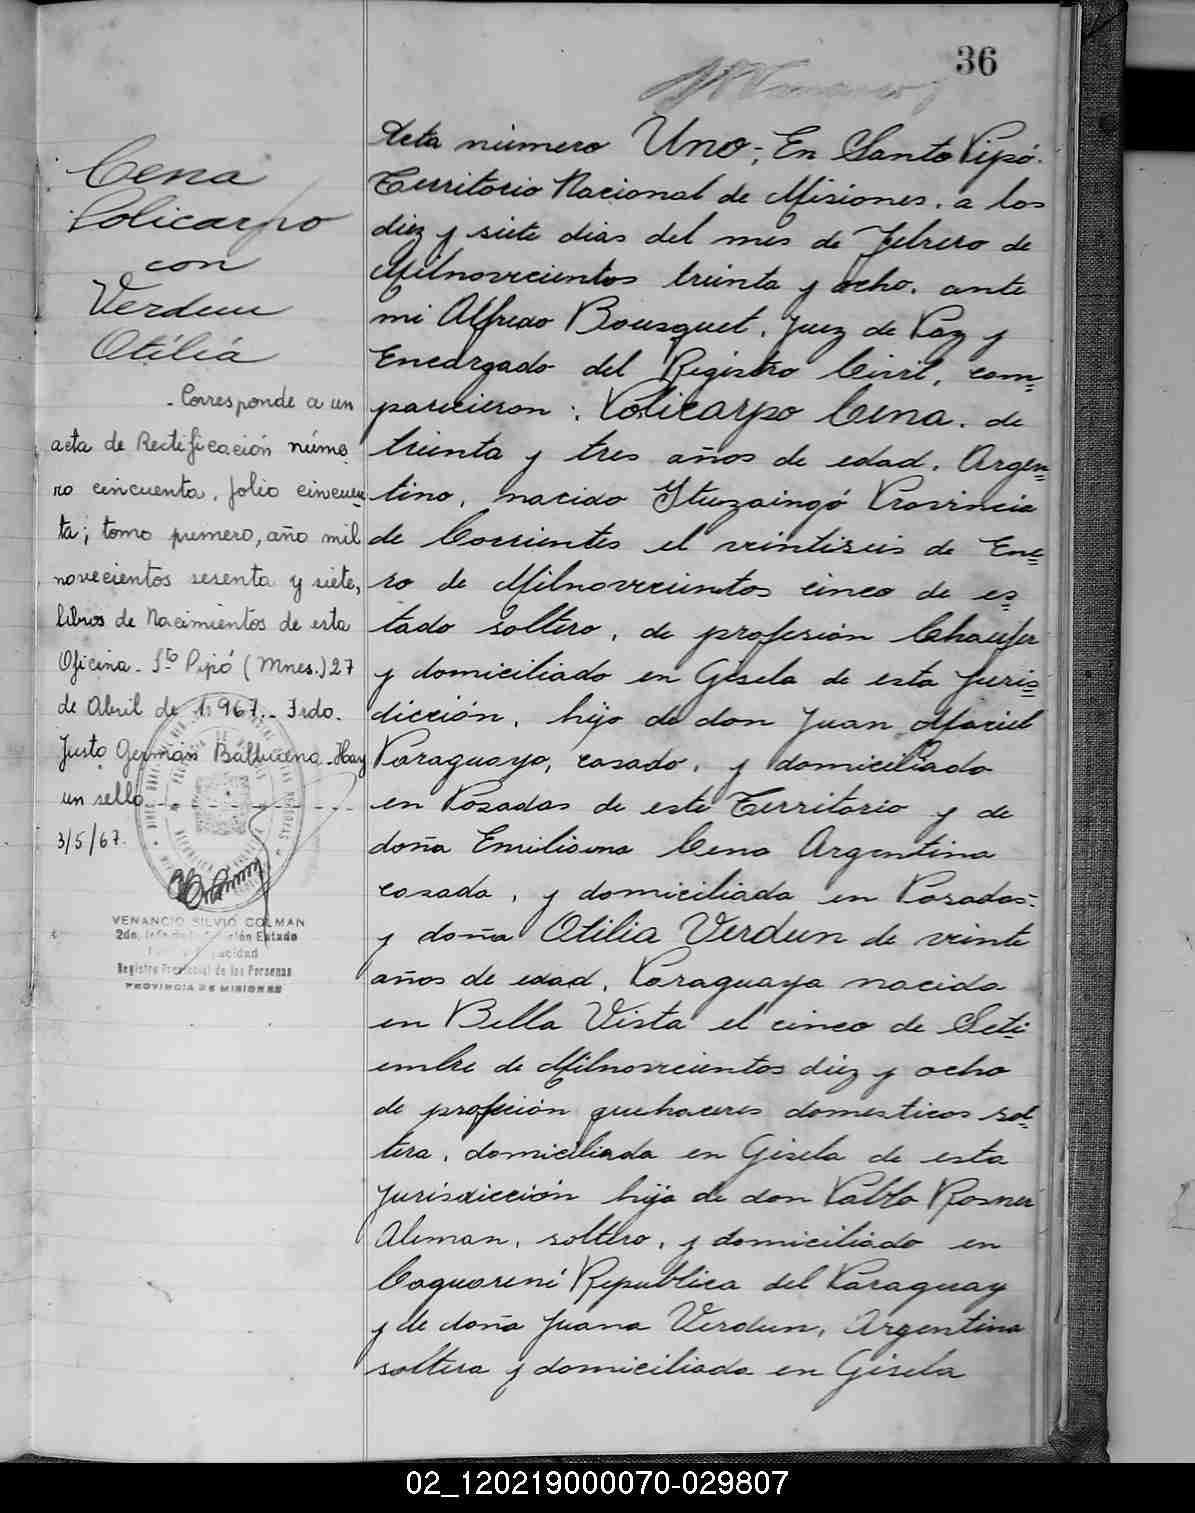 36
Cena
Policarpo
con
Verdun
Otilia
- Corresponde a un
acta de Rectificación núme
ro cincuenta, folio cincuen
ta; tomo primero, año mil
novecientos sesenta y siete,
libros de Nacimientos de esta
Oficina - Sto Pipó (Mnes.) 27
de Abril de 1967.- Fdo.
Justo Germán Balbuena - Hay
un sello
3/5/67.
VENANCIO SILVIO COLMAN
Registro Provincial de las Personas
PROVINCIA DE MISIONES
Acta número Uno; En Santo Pipó.
Territorio Nacional de Misiones, a los
diez y siete dias del mes de Febrero de
Milnovecientos treinta y ocho, ante
mi Alfredo Bousquet, Juez de Paz y
Encargado del Registro Civil, com=
parecieron: Policarpo Cena, de
treinta y tres años de edad, Argen=
tino, nacido Ituzaingó Provincia
de Corrientes el veintiseis de Ene=
ro de Milnovecientos cinco de es=
tado soltero, de profesión Chaufer
y domiciliado en Gisela de esta Juris=
dicción, hijo de don Juan Maciel
Paraguayo, casado, y domiciliado
en Posadas de este Territorio y de
doña Emiliana Cena Argentina
casada, y domiciliada en Posadas=
y doña Otilia Verdun de veinte
años de edad, Paraguaya nacida
en Bella Vista el cinco de Seti=
embre de Milnovecientos diez y ocho
de profeción quehaceres domesticos sol=
tera, domiciliada en Gisela de esta
Jurisdicción hija de don Pablo Rosner
Aleman, soltero, y domiciliado en
Caguarené Republica del Paraguay
y de doña Juana Verdun, Argentina
soltera y domiciliada en Gisela
02_120219000070-029807